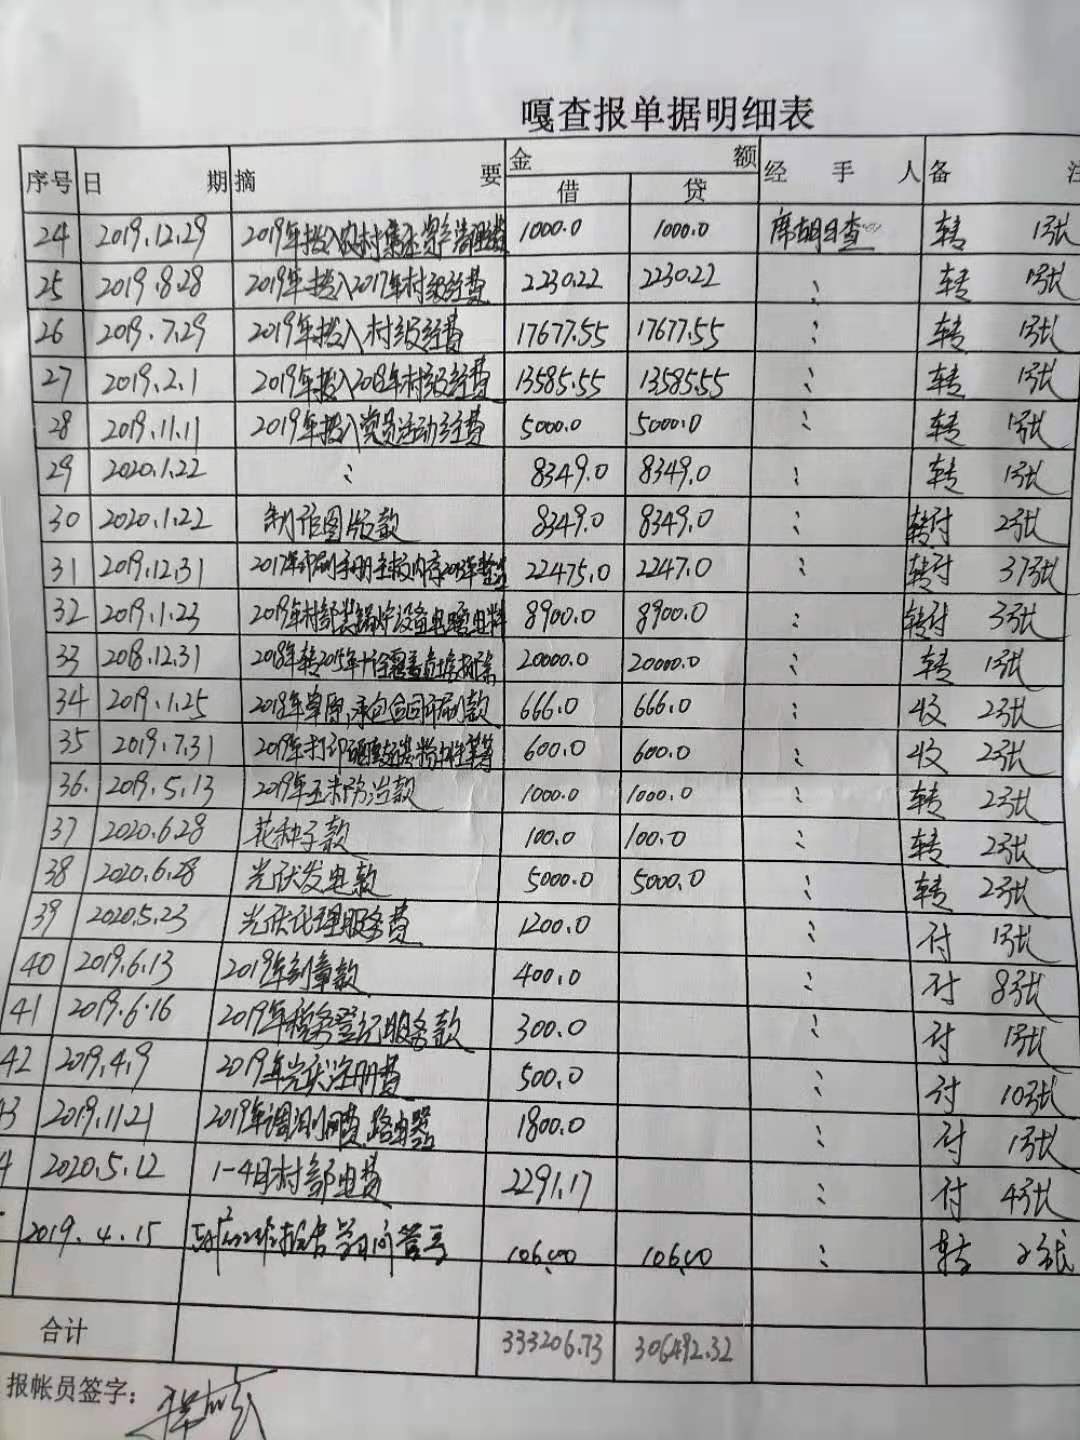 嘎查报单据明细表
序号 日期 摘要 金额 经手人 备注
借 贷
24 2019.12.29 2019年拨入农村集体资产管理费 1000.0 1000.0 席胡日查 转 1张
25 2019.8.28 2019年拨入2017年村级经费 2230.22 2230.22 〃 转 1张
26 2019.7.29 2019年拨入村级经费 17677.55 17677.55 〃 转 1张
27 2019.2.1 2019年拨入2018年村级经费 13585.55 13585.55 〃 转 1张
28 2019.11.11 2019年拨入党员活动经费 5000.0 5000.0 〃 转 1张
29 2020.1.22 〃 8349.0 8349.0 〃 转 1张
30 2020.1.22 制作图版款 8349.0 8349.0 〃 转付 2张
31 2019.12.31 2017年印刷手册 22475.0 2247.0 〃 转付 37张
32 2019.1.23 2019年村部装锅炉设备电暖电料 8900.0 8900.0 〃 转付 3张
33 2018.12.31 2018年转2015年 20000.0 20000.0 〃 转 1张
34 2019.1.25 2018年草原承包合同印刷款 666.0 666.0 〃 收 2张
35 2019.7.31 2019年打印 600.0 600.0 〃 收 2张
36. 2019.5.13 2019年玉米防治款 1000.0 1000.0 〃 转 2张
37 2020.6.28 花种子款 100.0 100.0 〃 转 2张
38 2020.6.28 光伏发电款 5000.0 5000.0 〃 转 2张
39 2020.5.23 光伏代理服务费 1200.0 〃 付 1张
40 2019.6.13 2019年刻章款 400.0 〃 付 8张
41 2019.6.16 2019年税务登记服务款 300.0 〃 付 1张
42 2019.4.9 2019年光伏注册费 500.0 〃 付 10张
43 2019.11.21 2019年调测网费路由器 1800.0 〃 付 1张
4 2020.5.12 1-4月村部电费 2291.17 〃 付 4张
2019.4.15 106.00 106.00 〃 转 2张
合计 333206.73 306492.32
报帐员签字：